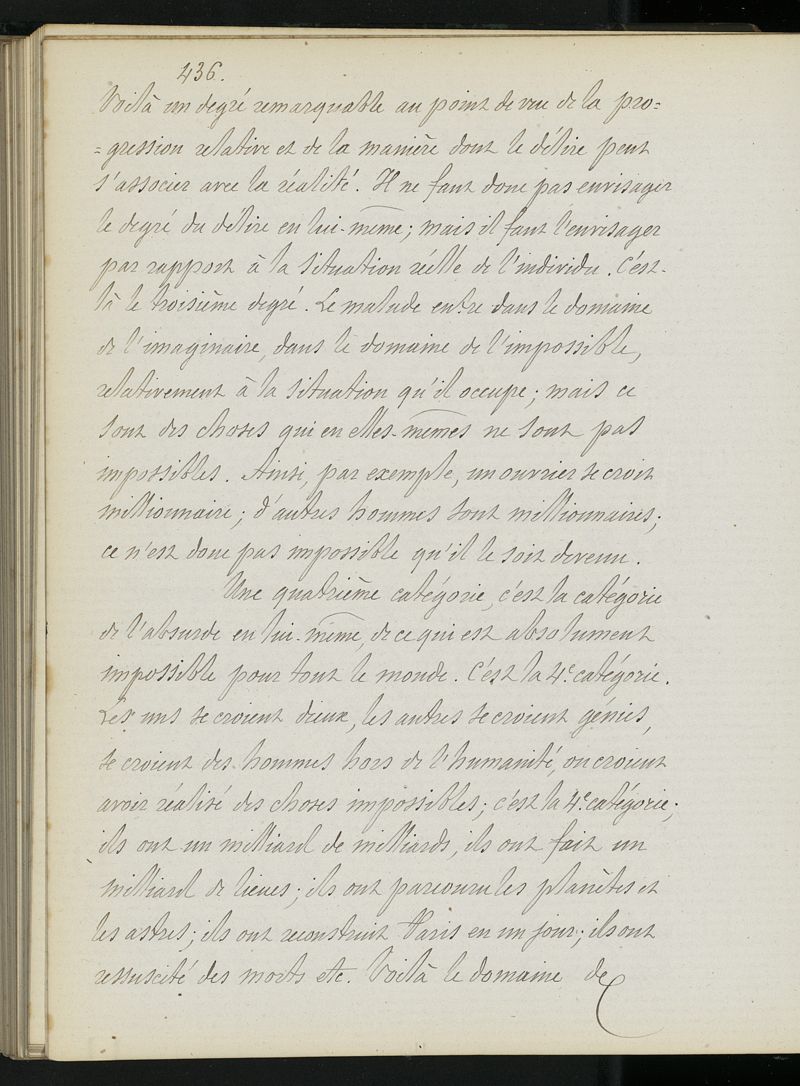 436.
Voilà un degré remarquable au point de vue de la pro=
=gression relative et de la manière dont le délire peut
s'associer avec la réalité. Il ne faut donc pas envisager
le degré du délire en lui-même; mais il faut l'envisager
par rapport à la situation réelle de l'individu. C'est-
là le troisième degré. Le malade entre dans le domaine
de l'imaginaire, dans le domaine de l'impossible,
relativement à la situation qu'il occupe; mais ce
sont des choses qui en elles-mêmes ne sont pas
impossibles. Ainsi, par exemple, un ouvrier se croit
millionnaire; d'autres hommes sont millionnaires;
ce n'est donc pas impossible qu'il le soit devenu.
Une quatrième catégorie, c'est la catégorie
de l'absurde en lui-même, de ce qui est absolument
impossible pour tout le monde. C'est la 4e catégorie.
Les uns se croient dieux, les autres se croient génies,
se croient des hommes hors de l'humanité, ou croient
avoir réalisé des choses impossibles; c'est la 4e catégorie;
ils ont un milliard de milliards, ils ont fait un
milliard de lieues; ils ont parcouru les planètes et
les astres; ils ont reconstruit Paris en un jour; ils ont
ressuscité des morts etc. Voilà le domaine de